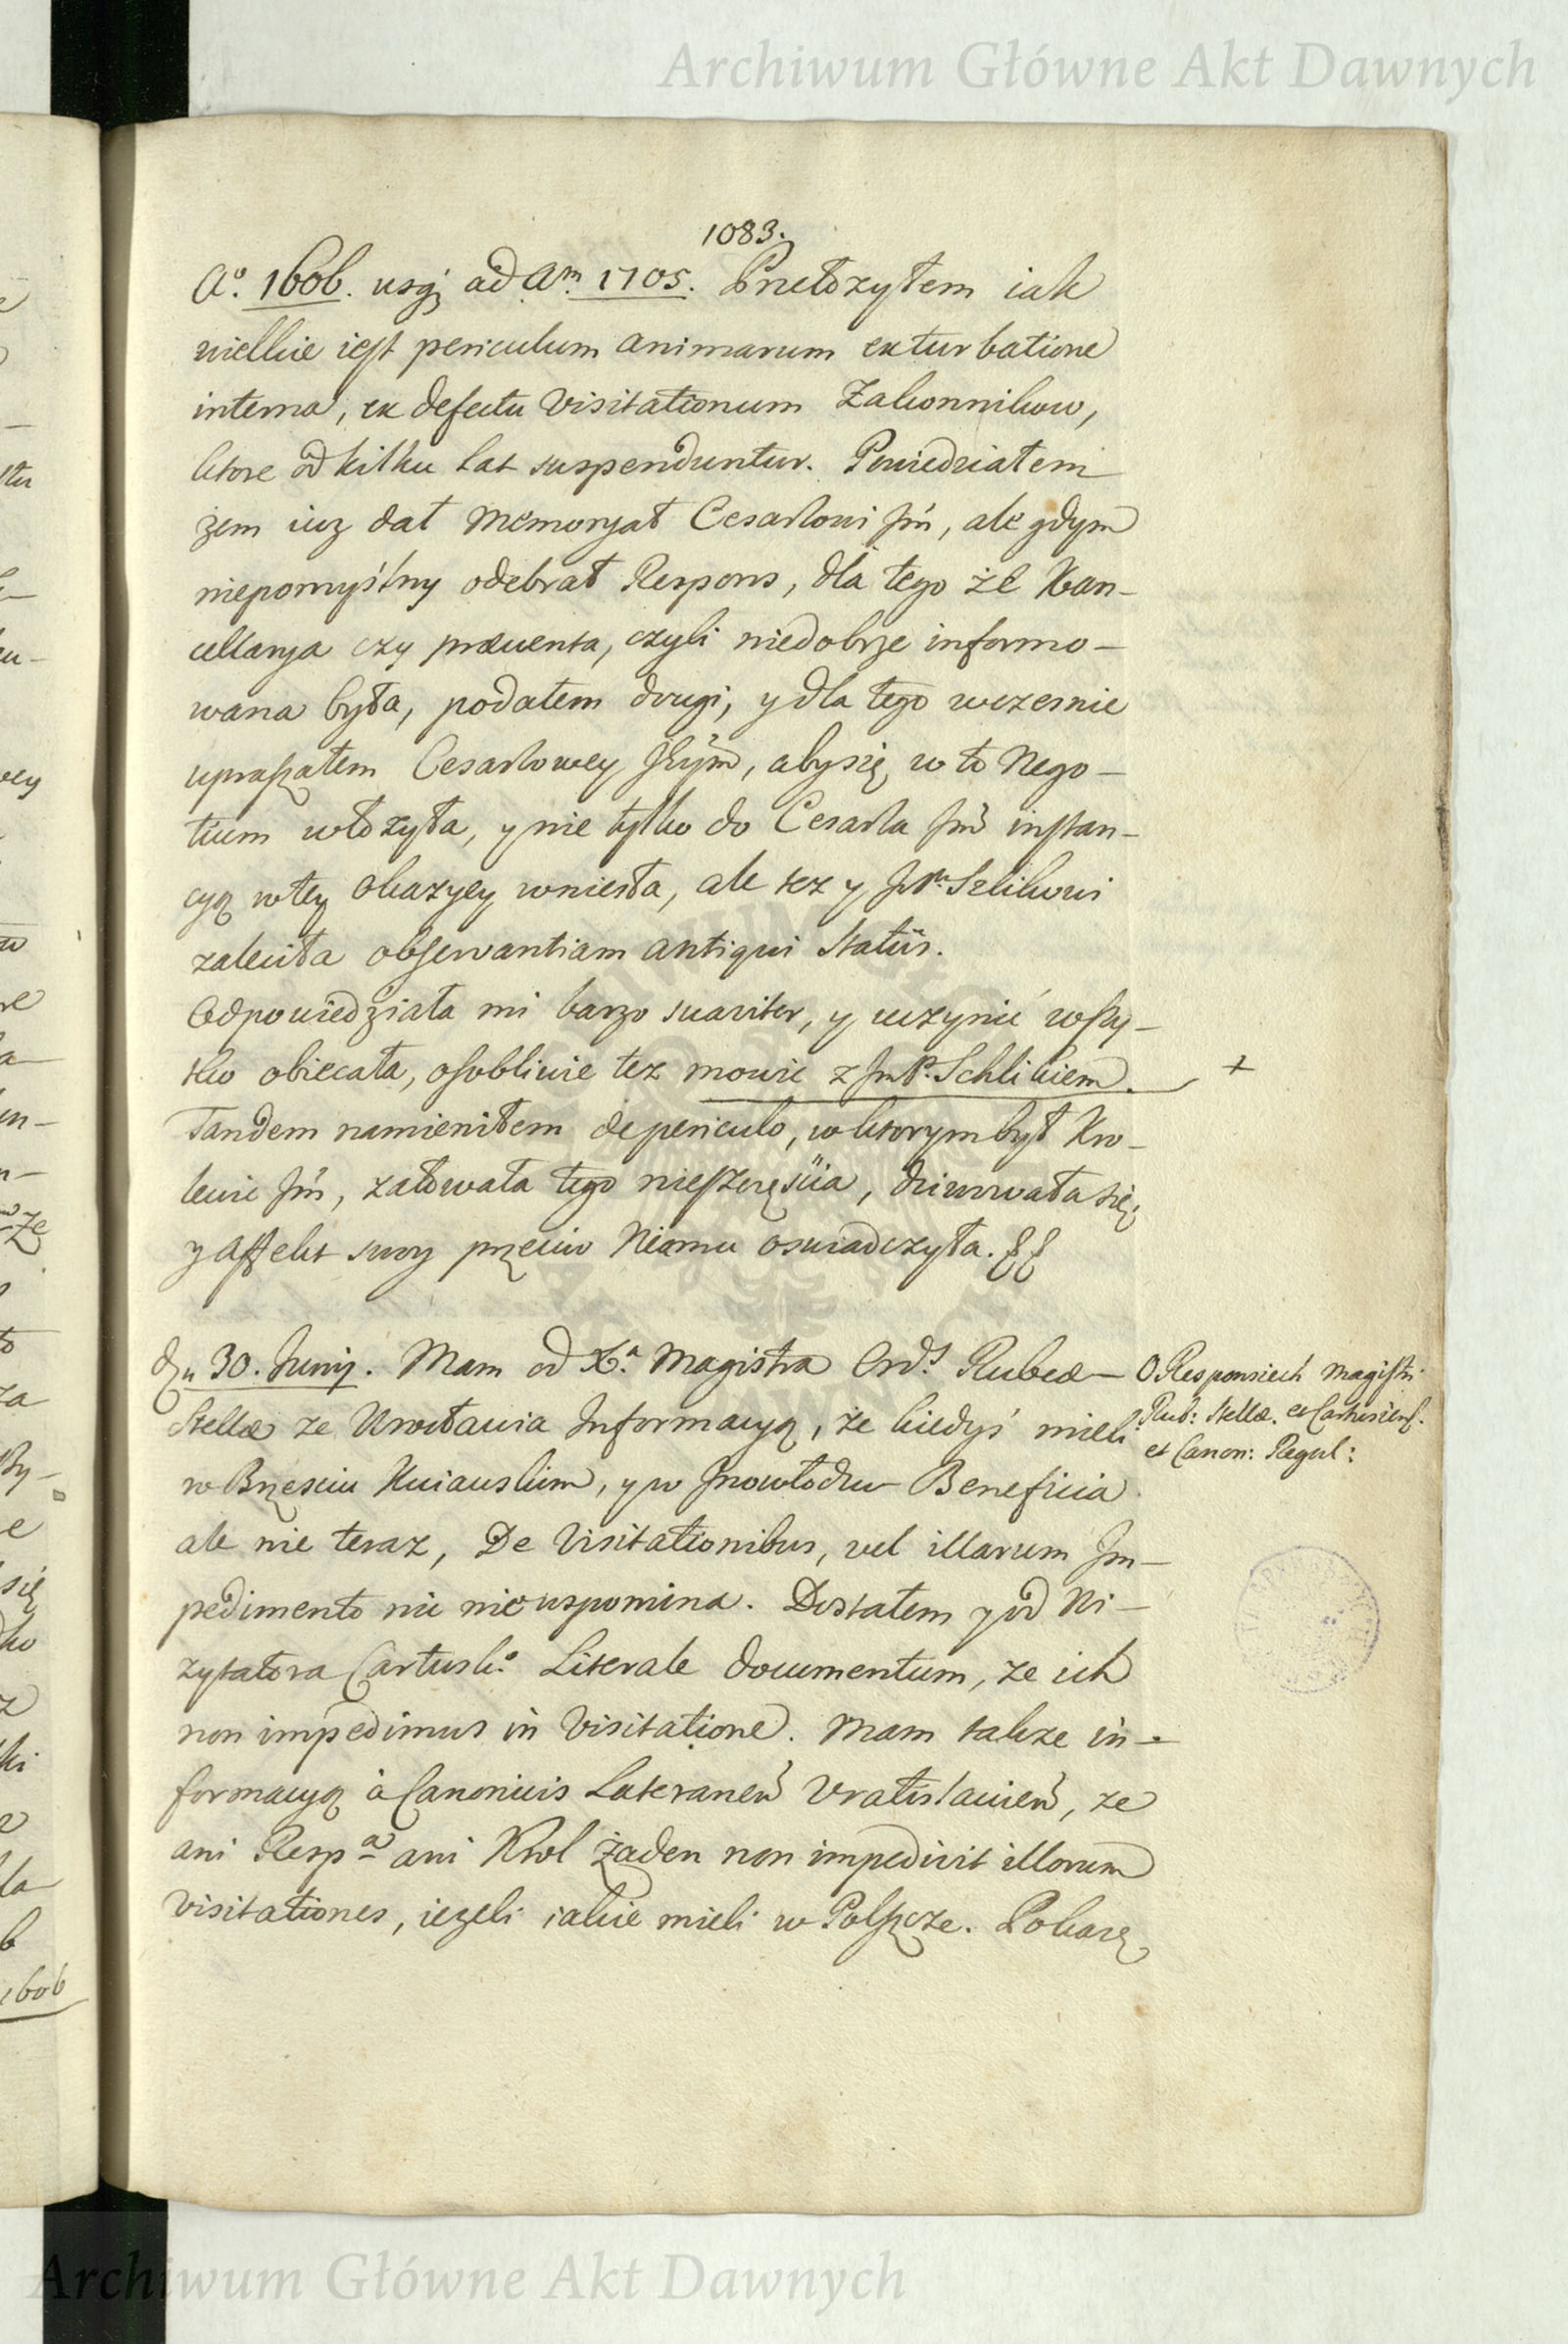 Archiwum Główne Akt Dawnych
1083.
Aº. 1606. usq; ad Am. 1705. Przełozyłem iak
wielkie iest periculum animarum ex turbatione
interna, ex defectu Visitationum Zakonnikow,
ktore od kilku lat suspenduntur. Powiedziałem
zem iuz dał Memoryał Cesarzowi Jm̃, ale gdym
niepomyślny odebrał Respons, dla tego że Kan-
cellarya czy præventa, czyli niedobrze informo-
wana była, podałem drugi, y dla tego wczesnie
upraszałem Cesarzowey JKeym̃, aby się w to Nego-
tium włozyła, y nie tylko do Cesarza Jm̃ instan-
cyą w tey okazyey wniesła, ale tez y JmPn. Szlikowi
zaleciła observantiam antiqui Statûs.
Odpowiedziała mi barzo suaviter, y uczynić wszy-
tko obiecała, osobliwie tez mowić z JmP. Schlikiem. +
Tandem namieniłem de periculo, w ktorym był Kro-
lewic Jm̃, załowała tego nieszczęścia, dziwowała się,
y affekt swoy przeciw Niemu oswiadczyła.
Dn 30. Junij. Mam od Xa. Magistra Ords. Rubeæ
Stellæ ze Wrocławia Informacyą, że kiedyś mieli
w Brzesciu Kuiawskim, y w Inowłodzu Beneficia
ale nie teraz, De Visitationibus, vel illarum Im-
pedimento nic nie wspomina. Dostałem y od Wi-
zytatora Cartusko. Literale documentum, ze ich
non impedimus in Visitatione. Mam takze in-
formacyą à Canonicis Lateraneñ Vratislavieñ, ze
ani Respa ani Krol żaden non impedivit illorum
visitationes, iezeli iakie mieli w Polszcze. Pokazę
O Responsiech Magistri
Rub: Stellæ. et Carthusiens.
et Canon: Regul:
Archiwum Główne Akt Dawnych